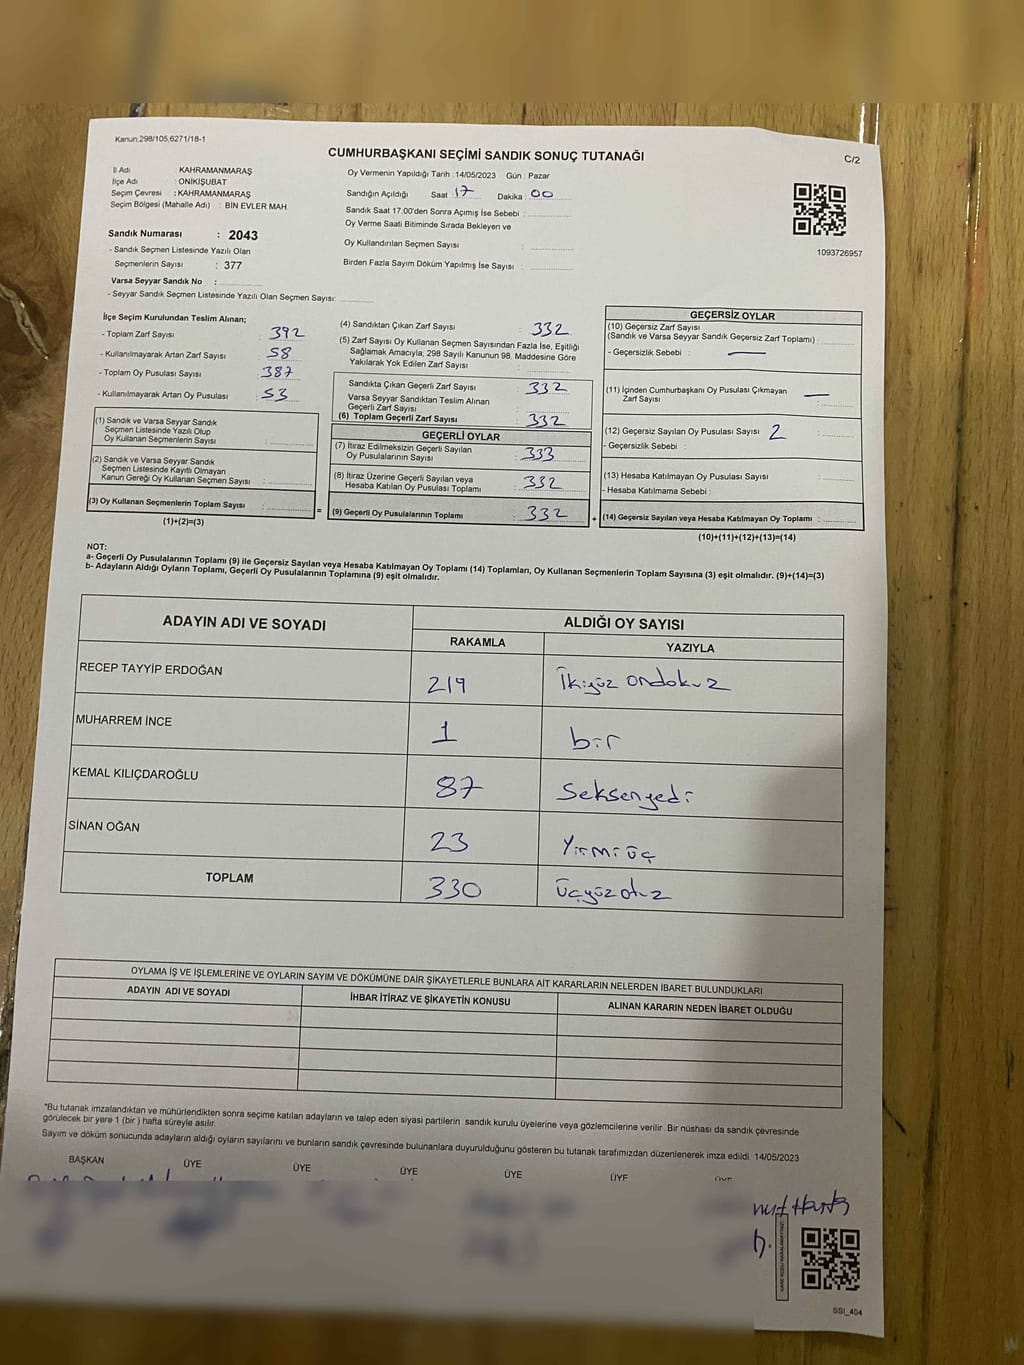 Kanun:298/105,6271/18-1
CUMHURBAŞKANI SEÇİMİ SANDIK SONUÇ TUTANAĞI
C/2
İl Adı : KAHRAMANMARAŞ
İlçe Adı : ONİKİŞUBAT
Seçim Çevresi : KAHRAMANMARAŞ
Seçim Bölgesi (Mahalle Adı) : BİN EVLER MAH.
Oy Vermenin Yapıldığı Tarih : 14/05/2023 Gün : Pazar
Sandığın Açıldığı Saat : 17 Dakika : 00
Sandık Saat 17:00'den Sonra Açımış İse Sebebi :
Oy Verme Saati Bitiminde Sırada Bekleyen ve
Oy Kullandırılan Seçmen Sayısı :
Birden Fazla Sayım Döküm Yapılmış İse Sayısı :
1093726957
Sandık Numarası : 2043
- Sandık Seçmen Listesinde Yazılı Olan
Seçmenlerin Sayısı : 377
Varsa Seyyar Sandık No :
- Seyyar Sandık Seçmen Listesinde Yazılı Olan Seçmen Sayısı:
İlçe Seçim Kurulundan Teslim Alınan;
- Toplam Zarf Sayısı : 392
- Kullanılmayarak Artan Zarf Sayısı : 58
- Toplam Oy Pusulası Sayısı : 387
- Kullanılmayarak Artan Oy Pusulası : 53
(1) Sandık ve Varsa Seyyar Sandık
Seçmen Listesinde Yazılı Olup
Oy Kullanan Seçmenlerin Sayısı :
(2) Sandık ve Varsa Seyyar Sandık
Seçmen Listesinde Kayıtlı Olmayan
Kanun Gereği Oy Kullanan Seçmen Sayısı :
(3) Oy Kullanan Seçmenlerin Toplam Sayısı :
(1)+(2)=(3)
(4) Sandıktan Çıkan Zarf Sayısı : 332
(5) Zarf Sayısı Oy Kullanan Seçmen Sayısından Fazla İse, Eşitliği
Sağlamak Amacıyla, 298 Sayılı Kanunun 98. Maddesine Göre
Yakılarak Yok Edilen Zarf Sayısı :
Sandıkta Çıkan Geçerli Zarf Sayısı : 332
Varsa Seyyar Sandıktan Teslim Alınan
Geçerli Zarf Sayısı :
(6) Toplam Geçerli Zarf Sayısı : 332
GEÇERLİ OYLAR
(7) İtiraz Edilmeksizin Geçerli Sayılan
Oy Pusulalarının Sayısı : 333
(8) İtiraz Üzerine Geçerli Sayılan veya
Hesaba Katılan Oy Pusulası Toplamı : 332
= (9) Geçerli Oy Pusulalarının Toplamı : 332
GEÇERSİZ OYLAR
(10) Geçersiz Zarf Sayısı
(Sandık ve Varsa Seyyar Sandık Geçersiz Zarf Toplamı) :
- Geçersizlik Sebebi : —
(11) İçinden Cumhurbaşkanı Oy Pusulası Çıkmayan
Zarf Sayısı : —
(12) Geçersiz Sayılan Oy Pusulası Sayısı 2 :
- Geçersizlik Sebebi :
(13) Hesaba Katılmayan Oy Pusulası Sayısı :
- Hesaba Katılmama Sebebi :
+ (14) Geçersiz Sayılan veya Hesaba Katılmayan Oy Toplamı :
(10)+(11)+(12)+(13)=(14)
NOT:
a- Geçerli Oy Pusulalarının Toplamı (9) ile Geçersiz Sayılan veya Hesaba Katılmayan Oy Toplamı (14) Toplamları, Oy Kullanan Seçmenlerin Toplam Sayısına (3) eşit olmalıdır. (9)+(14)=(3)
b- Adayların Aldığı Oyların Toplamı, Geçerli Oy Pusulalarının Toplamına (9) eşit olmalıdır.
ADAYIN ADI VE SOYADI ALDIĞI OY SAYISI
RAKAMLA YAZIYLA
RECEP TAYYİP ERDOĞAN 219 İkiyüz ondokuz
MUHARREM İNCE 1 bir
KEMAL KILIÇDAROĞLU 87 Seksenyedi
SİNAN OĞAN 23 Yirmi üç
TOPLAM 330 üçyüzotuz
OYLAMA İŞ VE İŞLEMLERİNE VE OYLARIN SAYIM VE DÖKÜMÜNE DAİR ŞİKAYETLERLE BUNLARA AİT KARARLARIN NELERDEN İBARET BULUNDUKLARI
ADAYIN ADI VE SOYADI İHBAR İTİRAZ VE ŞİKAYETİN KONUSU ALINAN KARARIN NEDEN İBARET OLDUĞU
*Bu tutanak imzalandıktan ve mühürlendikten sonra seçime katılan adayların ve talep eden siyasi partilerin sandık kurulu üyelerine veya gözlemcilerine verilir. Bir nüshası da sandık çevresinde
görülecek bir yere 1 (bir ) hafta süreyle asılır.
Sayım ve döküm sonucunda adayların aldığı oyların sayılarını ve bunların sandık çevresinde bulunanlara duyurulduğunu gösteren bu tutanak tarafımızdan düzenlenerek imza edildi. 14/05/2023
BAŞKAN ÜYE ÜYE ÜYE ÜYE ÜYE ÜYE
SSI_404